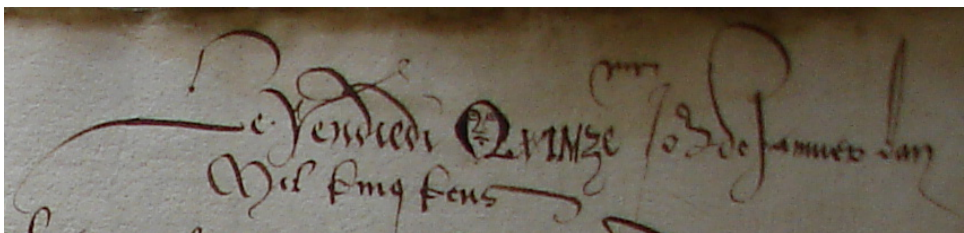 Le Vendredi Quinze^me jor de Januier lan
Mil kinq kens